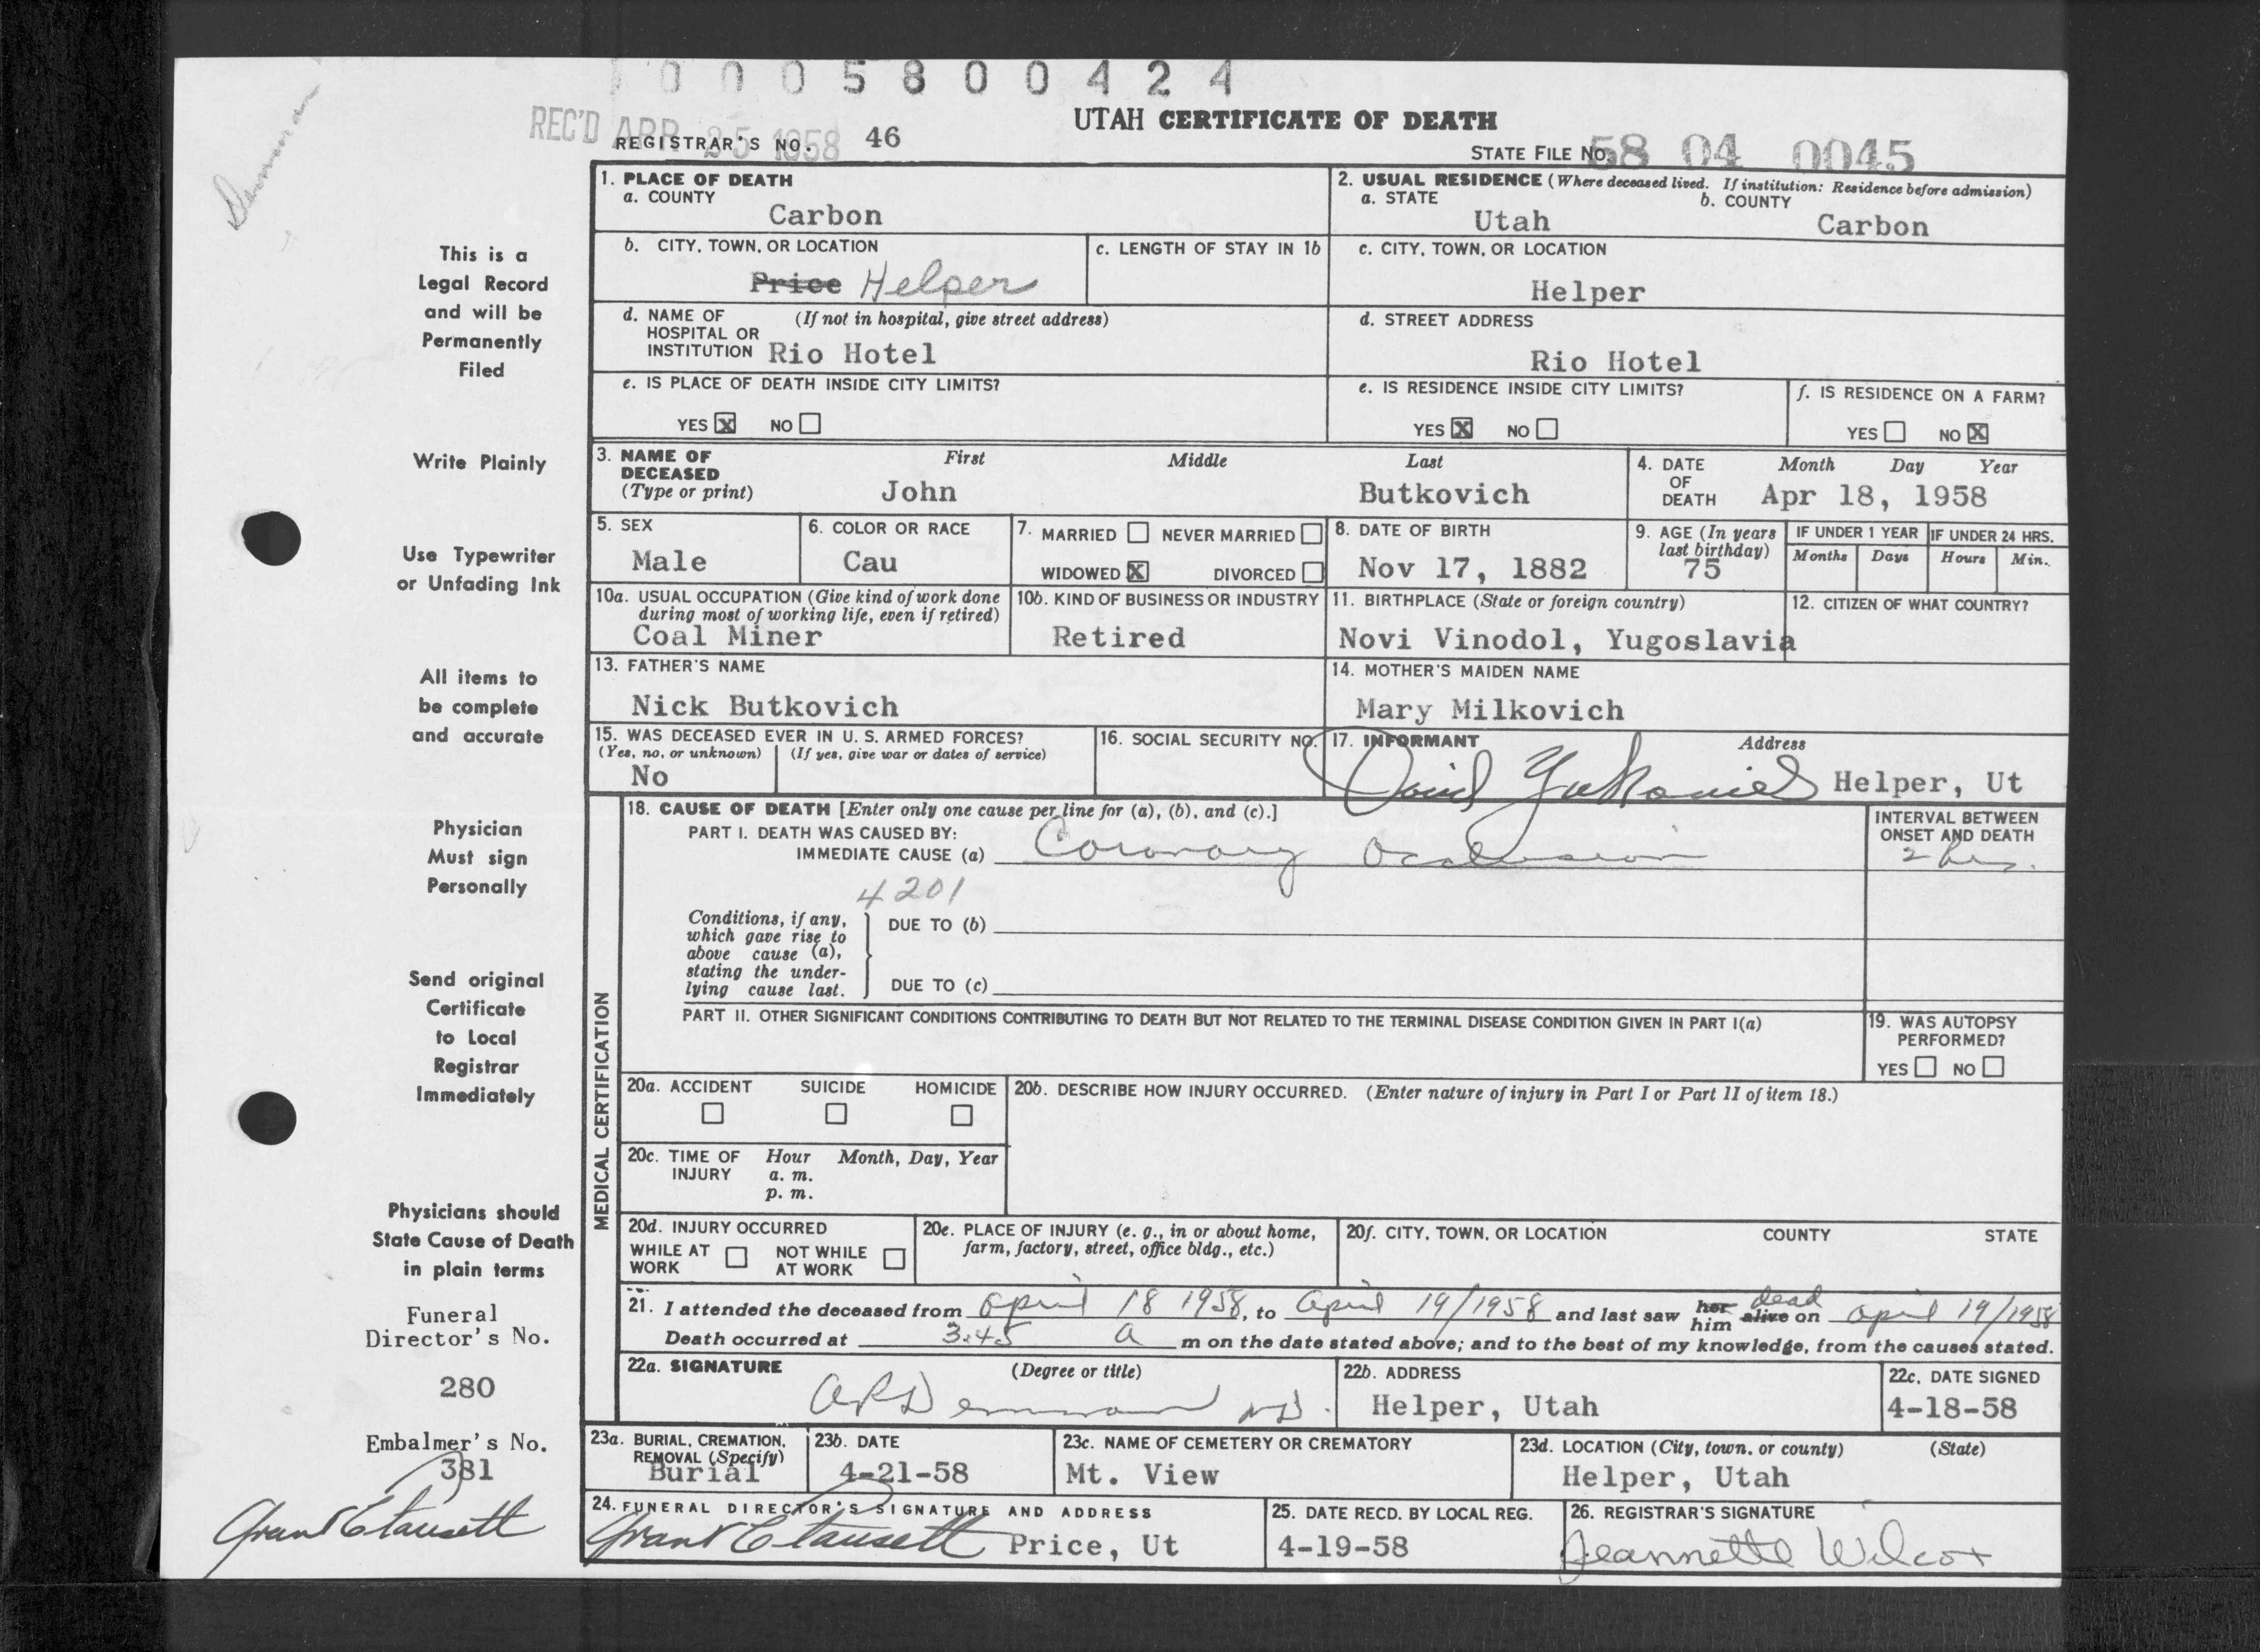 0 0 0 5 8 0 0 4 2 4
UTAH CERTIFICATE OF DEATH
REC'D APR 25 1958
REGISTRAR'S NO. 46
STATE FILE NO. 58 04 0045
This is a
Legal Record
and will be
Permanently
Filed
Write Plainly
Use Typewriter
or Unfading Ink
All items to
be complete
and accurate
Physician
Must sign
Personally
Send original
Certificate
to Local
Registrar
Immediately
Physicians should
State Cause of Death
in plain terms
Funeral
Director's No.
280
Embalmer's No.
381
1. PLACE OF DEATH
a. COUNTY
Carbon
2. USUAL RESIDENCE (Where deceased lived. If institution: Residence before admission)
a. STATE
Utah
b. COUNTY
Carbon
b. CITY, TOWN, OR LOCATION
Price Helper
c. LENGTH OF STAY IN 1b
c. CITY, TOWN, OR LOCATION
Helper
d. NAME OF (If not in hospital, give street address)
HOSPITAL OR
INSTITUTION Rio Hotel
d. STREET ADDRESS
Rio Hotel
e. IS PLACE OF DEATH INSIDE CITY LIMITS?
YES X NO
e. IS RESIDENCE INSIDE CITY LIMITS?
YES X NO
f. IS RESIDENCE ON A FARM?
YES NO X
3. NAME OF First Middle Last
DECEASED
(Type or print) John Butkovich
4. DATE Month Day Year
OF
DEATH Apr 18, 1958
5. SEX
Male
6. COLOR OR RACE
Cau
7. MARRIED NEVER MARRIED
WIDOWED X DIVORCED
8. DATE OF BIRTH
Nov 17, 1882
9. AGE (In years
last birthday)
75
IF UNDER 1 YEAR
Months Days
IF UNDER 24 HRS.
Hours Min.
10a. USUAL OCCUPATION (Give kind of work done
during most of working life, even if retired)
Coal Miner
10b. KIND OF BUSINESS OR INDUSTRY
Retired
11. BIRTHPLACE (State or foreign country)
Novi Vinodol, Yugoslavia
12. CITIZEN OF WHAT COUNTRY?
13. FATHER'S NAME
Nick Butkovich
14. MOTHER'S MAIDEN NAME
Mary Milkovich
15. WAS DECEASED EVER IN U. S. ARMED FORCES?
(Yes, no, or unknown) (If yes, give war or dates of service)
No
16. SOCIAL SECURITY NO.
17. INFORMANT Address
Helper, Ut
MEDICAL CERTIFICATION
18. CAUSE OF DEATH [Enter only one cause per line for (a), (b), and (c).]
PART I. DEATH WAS CAUSED BY:
IMMEDIATE CAUSE (a) Coronary Occlusion
INTERVAL BETWEEN
ONSET AND DEATH
2 hrs.
4201
Conditions, if any,
which gave rise to
above cause (a),
stating the under-
lying cause last.
DUE TO (b)
DUE TO (c)
PART II. OTHER SIGNIFICANT CONDITIONS CONTRIBUTING TO DEATH BUT NOT RELATED TO THE TERMINAL DISEASE CONDITION GIVEN IN PART I(a)
19. WAS AUTOPSY
PERFORMED?
YES NO
20a. ACCIDENT SUICIDE HOMICIDE
20b. DESCRIBE HOW INJURY OCCURRED. (Enter nature of injury in Part I or Part II of item 18.)
20c. TIME OF Hour Month, Day, Year
INJURY a. m.
p. m.
20d. INJURY OCCURRED
WHILE AT NOT WHILE
WORK AT WORK
20e. PLACE OF INJURY (e. g., in or about home,
farm, factory, street, office bldg., etc.)
20f. CITY, TOWN, OR LOCATION COUNTY STATE
21. I attended the deceased from April 18 1958, to April 19/1958 and last saw her him alive dead on April 19/1958
Death occurred at 3:45 a m on the date stated above; and to the best of my knowledge, from the causes stated.
22a. SIGNATURE (Degree or title)
Demman MD.
22b. ADDRESS
Helper, Utah
22c. DATE SIGNED
4-18-58
23a. BURIAL, CREMATION,
REMOVAL (Specify)
Burial
23b. DATE
4-21-58
23c. NAME OF CEMETERY OR CREMATORY
Mt. View
23d. LOCATION (City, town, or county) (State)
Helper, Utah
24. FUNERAL DIRECTOR'S SIGNATURE AND ADDRESS
Price, Ut
25. DATE RECD. BY LOCAL REG.
4-19-58
26. REGISTRAR'S SIGNATURE
Jeannette Wilcox